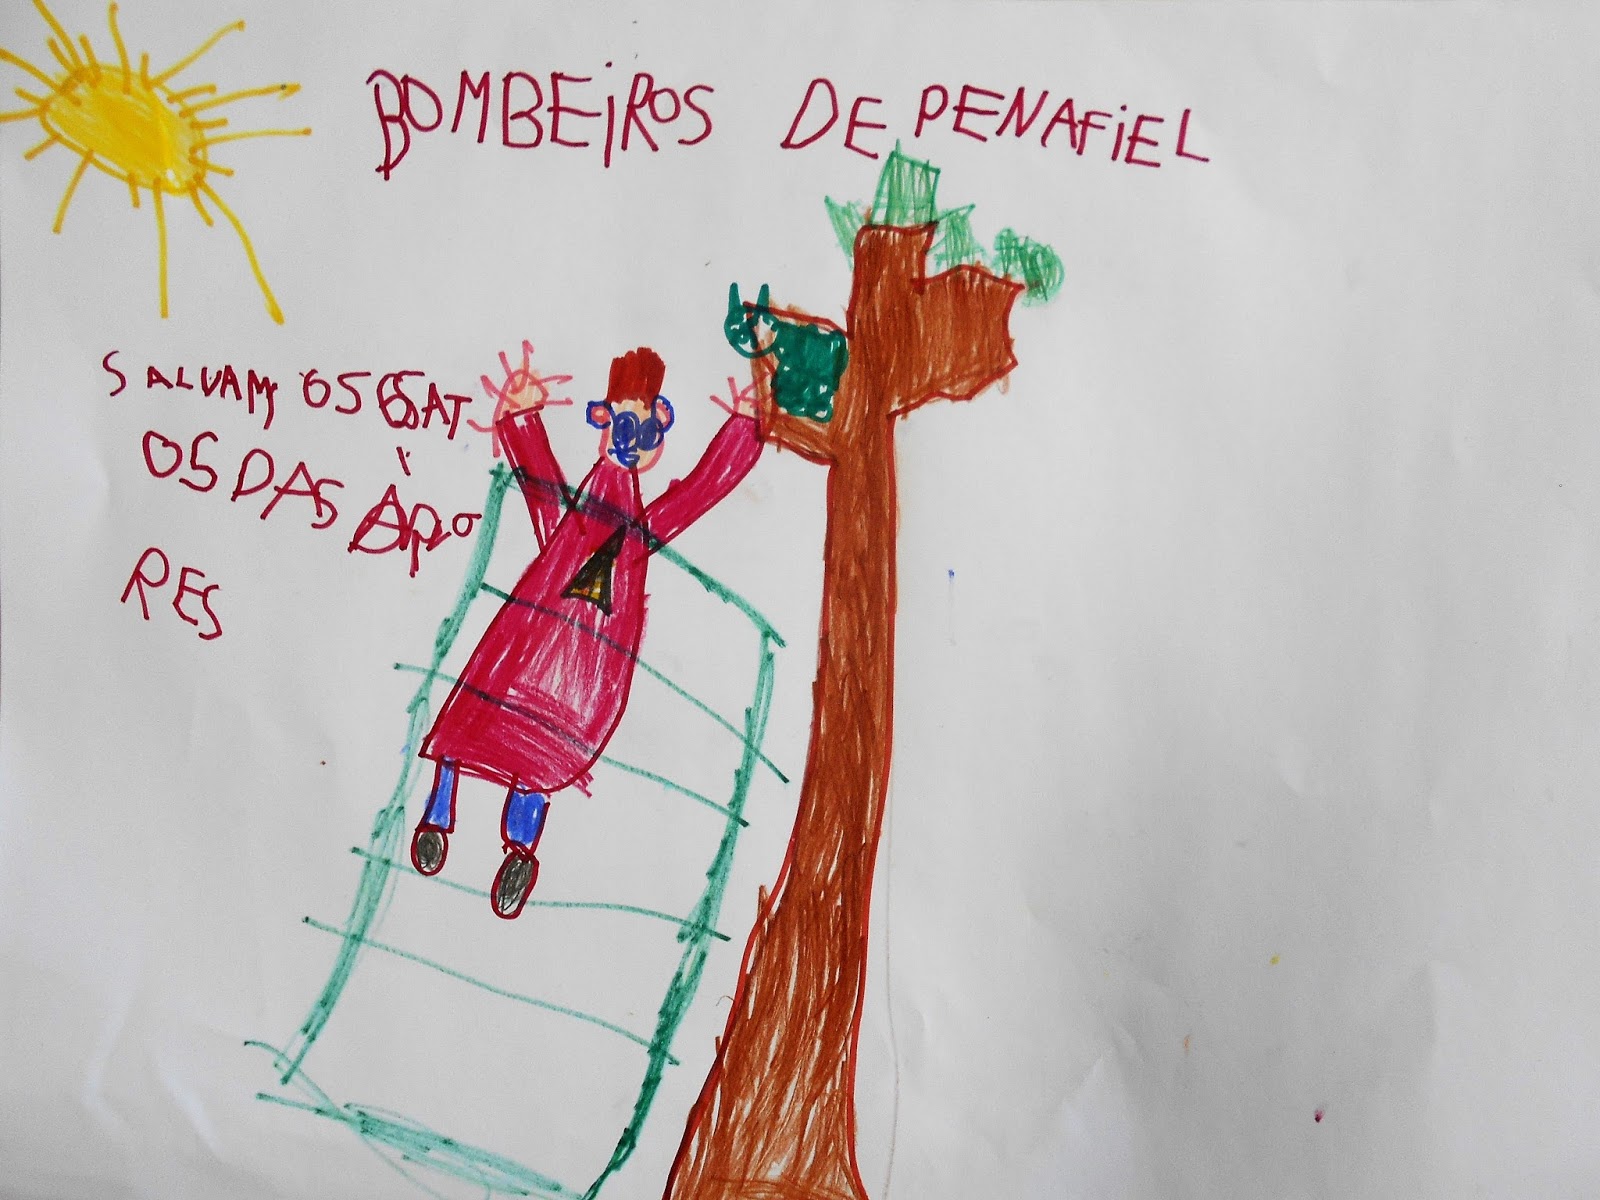 BOMBEIROS DE PENAFIEL
SALVAM OS GAT
OS DAS ÁRVO
RES